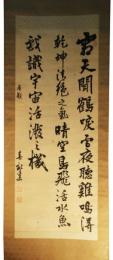 霜天聞鶴唳雪夜聽雞鳴得
乾坤清絕之氣晴空鳥飛活水魚
戲識宇宙活潑之機